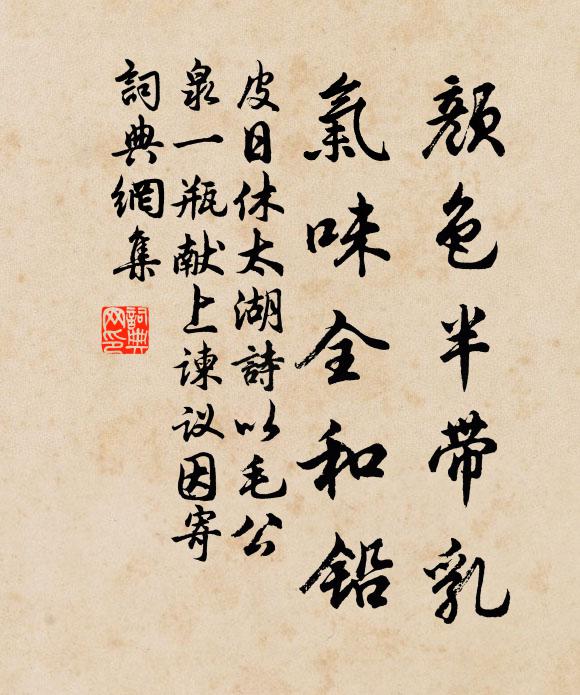 顏色半帶乳
氣味全和鉛
皮日休太湖詩以毛公
泉一瓶献上諫议因寄
詞典網集
詞典网印